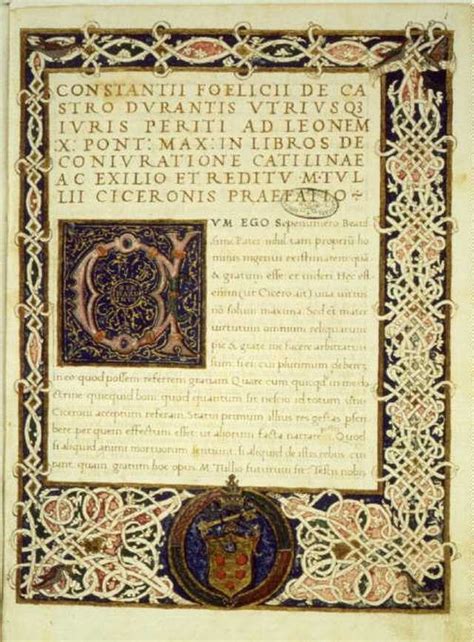 CONSTANTII FOELICII DE CA
STRO DVRANTIS VTRIVSQ3
IVRIS PERITI AD LEONEM
X: PONT: MAX: IN LIBROS DE
CONIVRATIONE CATILINAE
AC EXILIO ET REDITV M·TVL
LII CICERONIS PRAEFATIO
VM EGO Sepenumero Beatis
sime Pater nihil tam propriū ho
minis ingenii existimatem quā
& gratum esse et uideri Hec est
enim (ut Cicero ait) una uirtus
nō solum maxima Sed et mater
uirtutum omnium reliquarum
cui plurimum deberem
in eo quod possem referrem gratiam Quare cum quicqd in me do
ctrine quicquid boni quod quantum sit nescio ad totum unius
Ciceroni acceptum referam. Statui primum illius res gestas pscri
bere per quem effectum esset ut aliorum facta narrare Quod
si aliquid animi mortuorum sentiunt si aliquid de istis rebus cu
rant quam gratum hoc opus M Tullio futurum sit Testis nobis